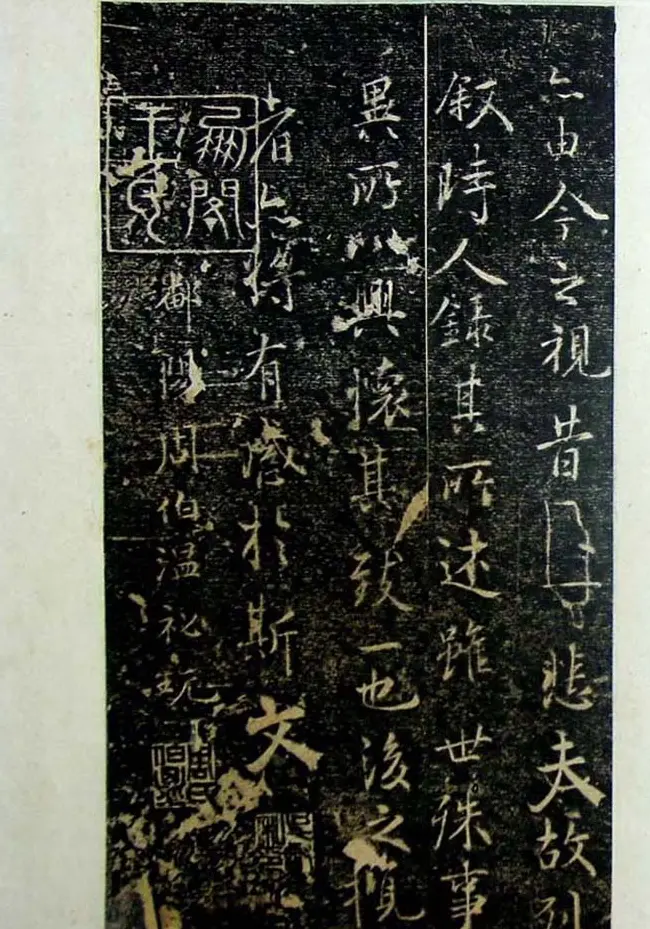 亦由今之視昔悲夫故列
叙時人錄其所述雖世殊事
異所以興懷其致一也後之攬
者亦將有感於斯文
鄱陽周伯溫祕玩